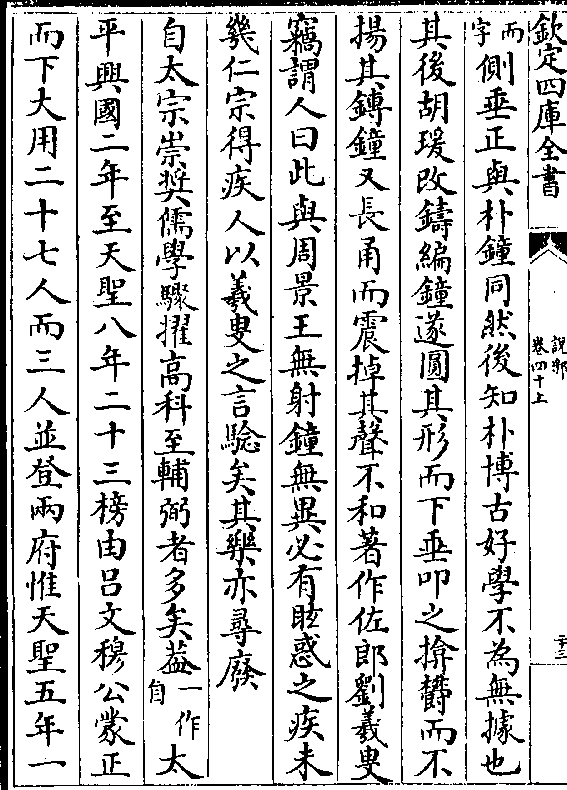 欽定四庫全書
說郛
卷四十上
二十三
而
字側垂正與朴鐘同然後知朴博古好學不為無據也
其後胡瑗改鑄編鐘遂圓其形而下垂叩之揜鬱而不
揚其鎛鐘又長甬而震掉其聲不和著作佐郎劉羲叟
竊謂人曰此與周景王無射鐘無異必有眩惑之疾未
幾仁宗得疾人以羲叟之言驗矣其樂亦尋廢
自太宗崇奬儒學驟擢高科至輔弼者多矣葢一作自太
平興國二年至天聖八年二十三榜由呂文穆公蒙正
而下大用二十七人而三人並登兩府惟天聖五年一